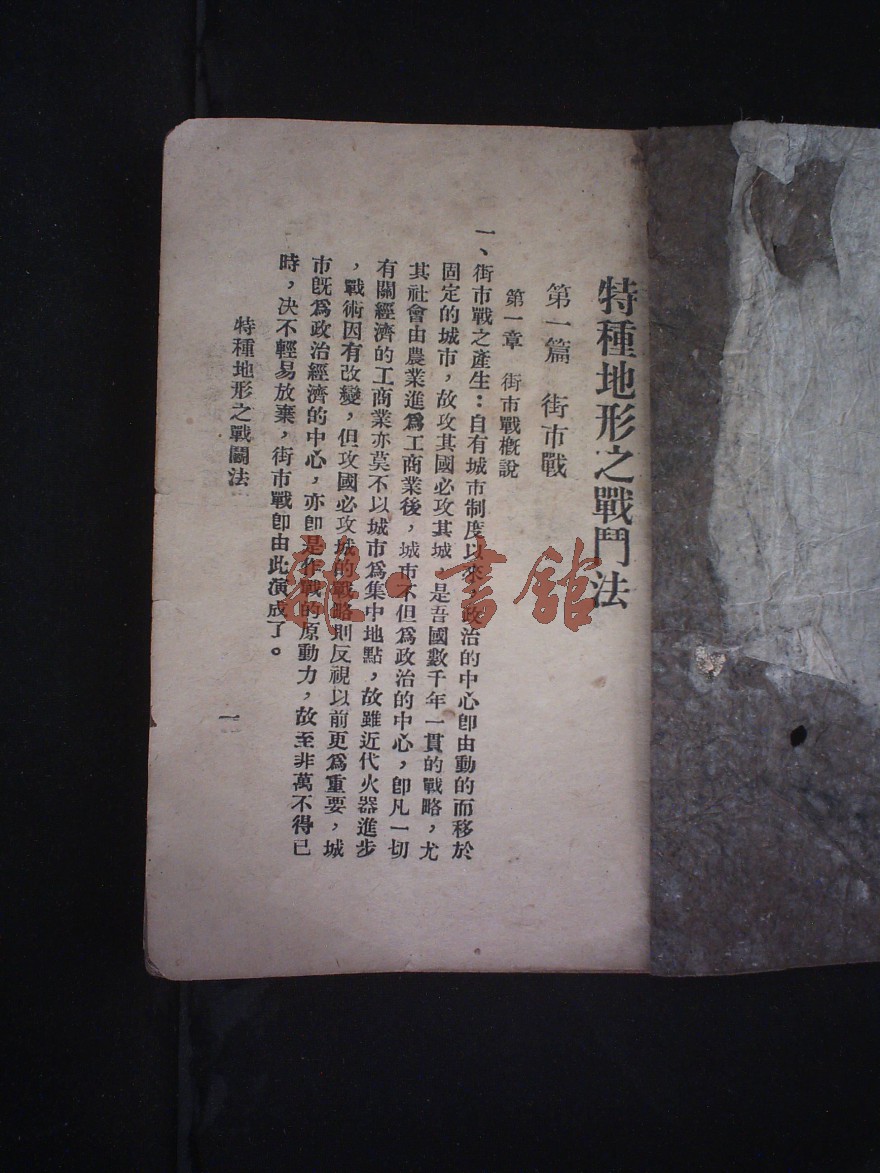 特種地形之戰鬥法
第一篇　街市戰
第一章　街市戰概說
一、街市戰之產生：自有城市制度以來，政治的中心卽由動的而移於
固定的城市，故攻其國必攻其城，是吾國數千年一貫的戰略，尤
其社會由農業進爲工商業後，城市不但爲政治的中心，卽凡一切
有關經濟的工商業亦莫不以城市爲集中地點，故雖近代火器進步
，戰術因有改變，但攻國必攻城的戰略則反視以前更爲重要，城
市旣爲政治經濟的中心，亦卽是作戰的原動力，故至非萬不得已
時，決不輕易放棄，街市戰卽由此演成了。
特種地形之戰鬪法
一
雜·書館